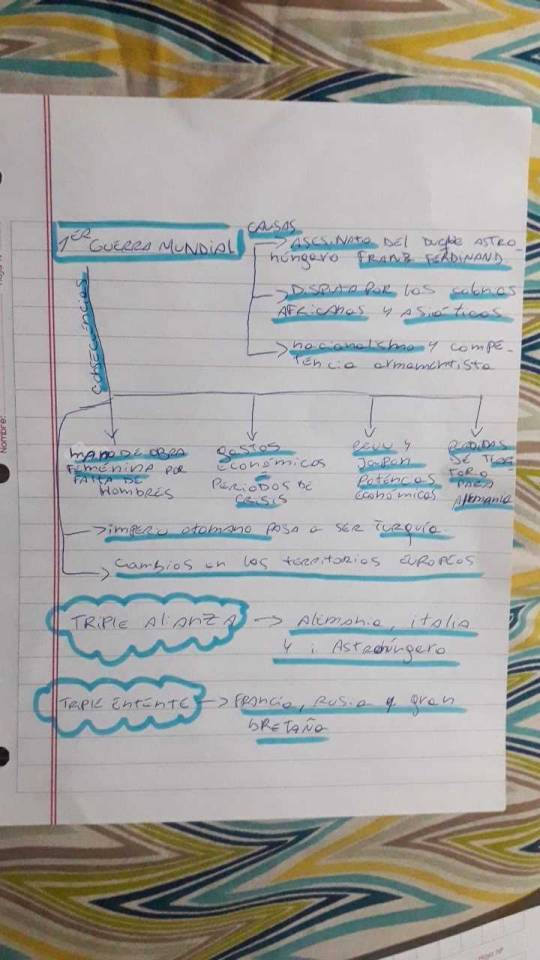 1ER GUERRA MUNDIAL
CAUSAS
→ ASESINATO DEL DUQUE ASTRO-
húngaro FRANZ FERDINAND
→ DISPUTA POR LOS colonias
AFRICANOS y ASIÁTICOS
→ nacionalismo y COMPE-
TENCIA armamentista
CONSECUENCIAS
MANO DE OBRA
FEMENINA POR
FALTA DE
HOMBRES
GASTOS
ECONÓMICOS
PERIODOS DE
CRISIS
EEUU y
Japon
Poténcias
económicos
PERDIDAS
DE
PARA
Alemania
→ imperio otomano PASA a SER TURQUÍA
→ Cambios en los territorios EUROPEOS
TRIPLE ALIANZA → Alemania, italia
y i Astrohúngero
TRIPLE ENTENTE → FRANCIA, RUSIA y gran
BRETAÑA
Nombre: